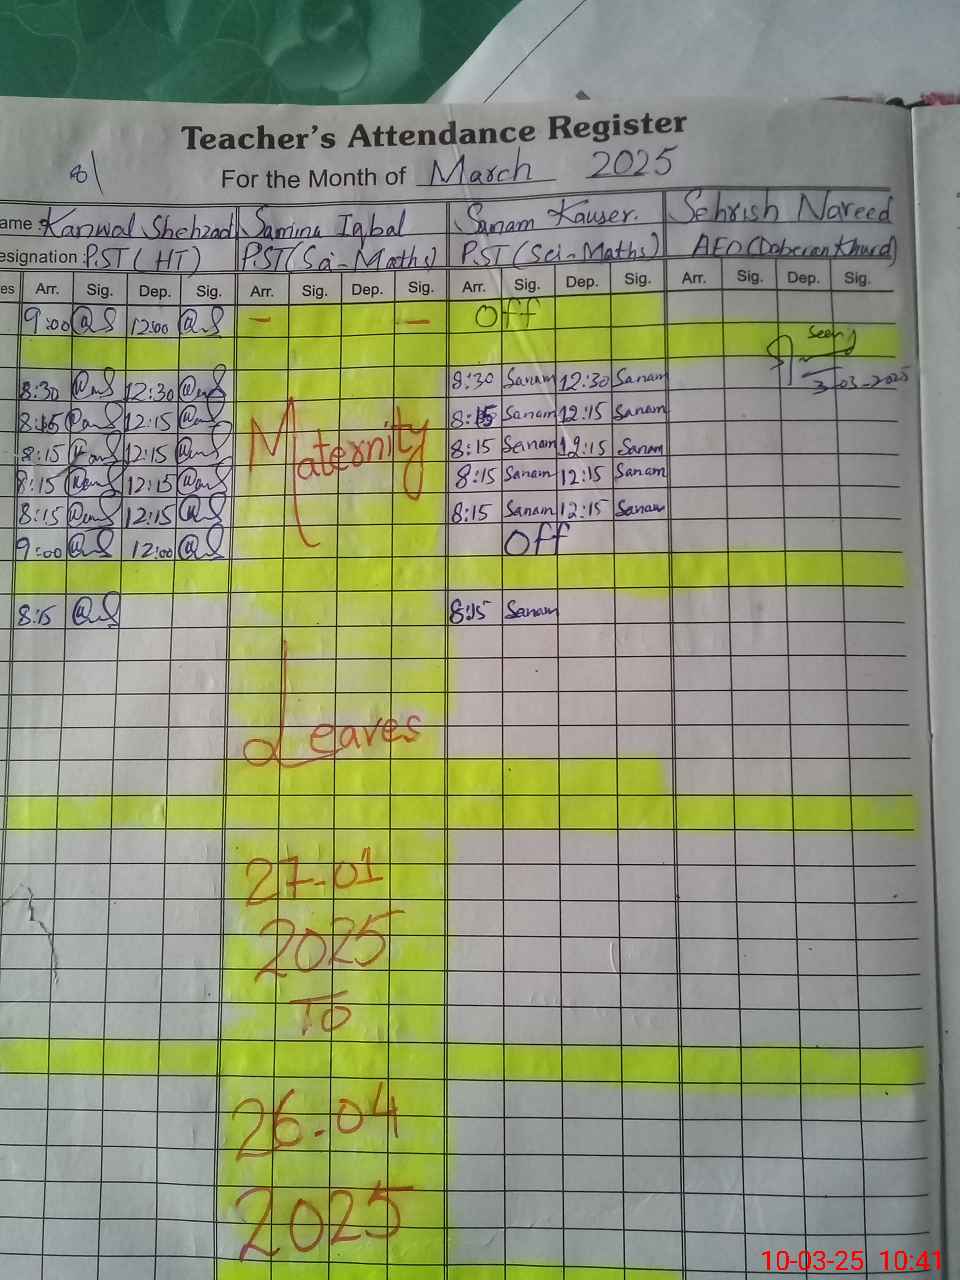 Teacher's Attendance Register
For the Month of March 2025
ame: Kanwal Shehzad Samina Iqbal Sanam Kauser. Sehrish Naveed
esignation: PST (HT) PST (Sci-Maths) PST (Sci-Maths) AEO (Daberan Khurd)
es Arr. Sig. Dep. Sig. Arr. Sig. Dep. Sig. Arr. Sig. Dep. Sig. Arr. Sig. Dep. Sig.
9:00 12:00 — — Off
Seen
8:30 12:30 8:30 Sanam 12:30 Sanam 3-03-2025
8:15 12:15 8:15 Sanam 12:15 Sanam
Maternity
8:15 12:15 8:15 Sanam 12:15 Sanam
8:15 12:15 8:15 Sanam 12:15 Sanam
8:15 12:15 8:15 Sanam 12:15 Sanam
9:00 12:00 Off
8:15 8:15 Sanam
Leaves
27-01
2025
To
26-04
2025
10-03-25 10:41